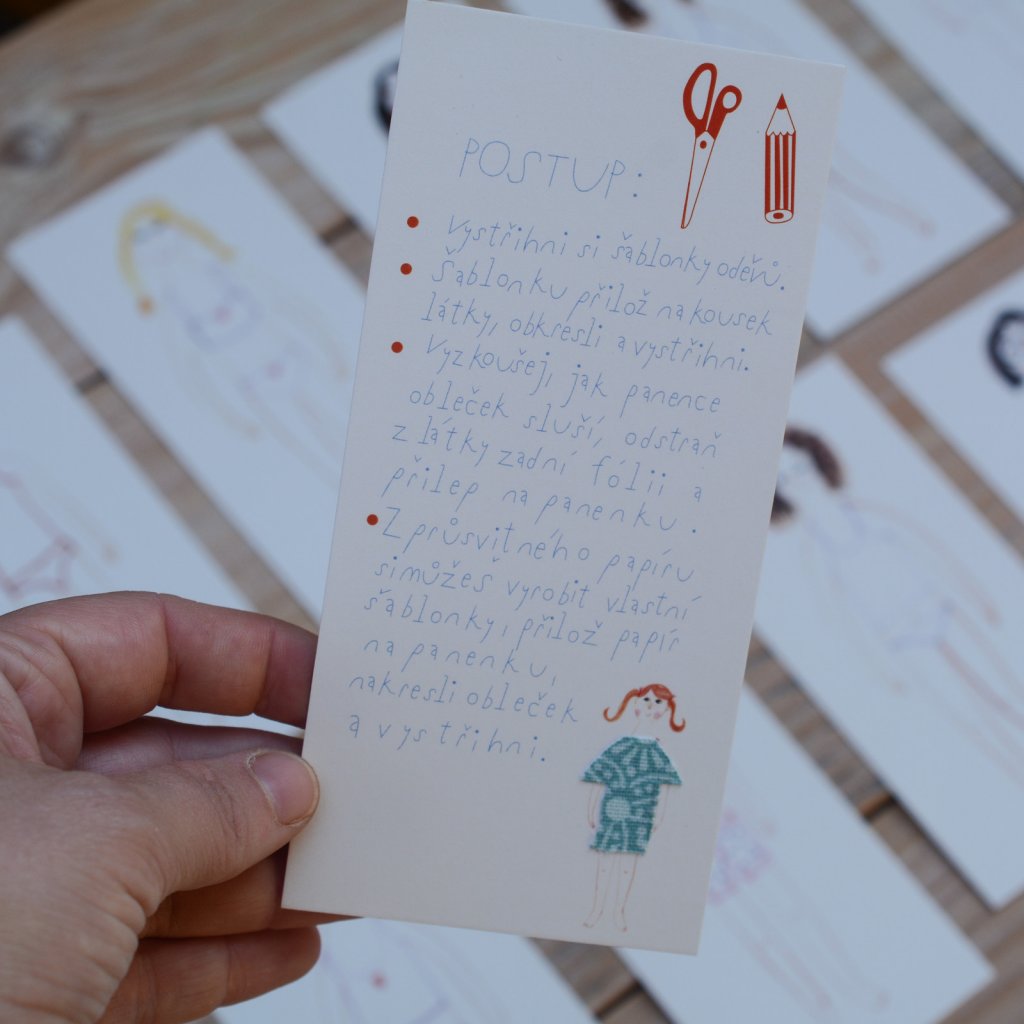 POSTUP:
Vystřihni si šablonky oděvů.
Šablonku přilož na kousek
látky, obkresli a vystřihni.
Vyzkoušej, jak panence
obleček sluší, odstraň
z látky zadní fólii a
přilep na panenku.
Z průsvitného papíru
si můžeš vyrobit vlastní
šablonky, přilož papír
na panenku,
nakresli obleček
a vystřihni.